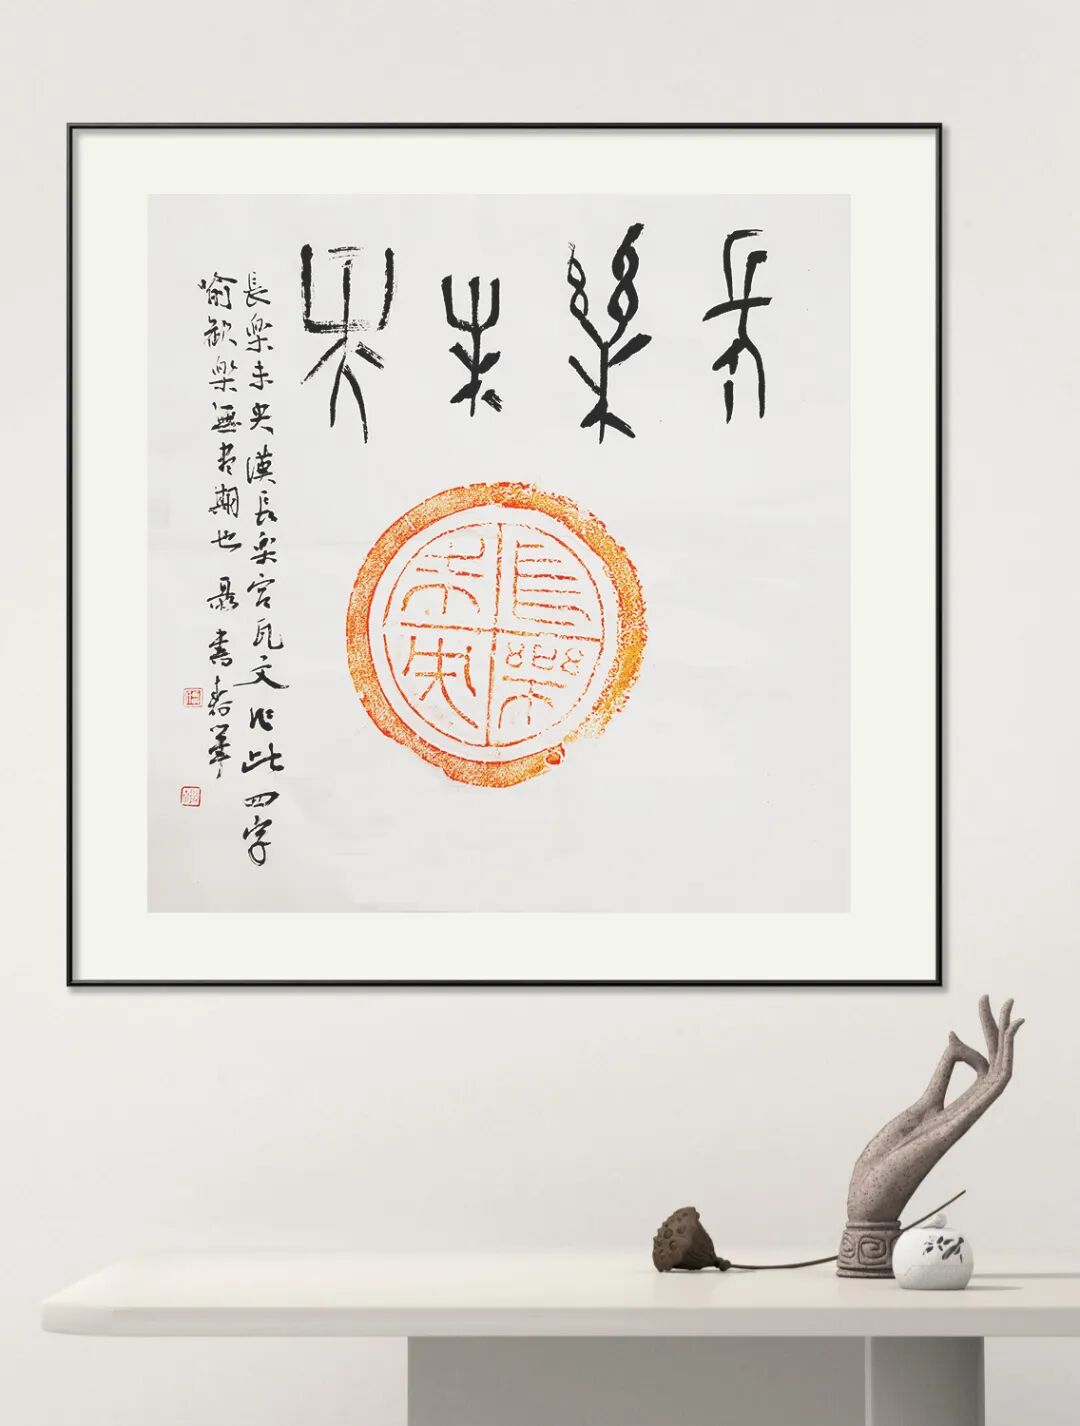 長樂未央
長樂未央
長樂未央漢長樂宮瓦文作此四字
喻歡樂無盡期也 書壽華